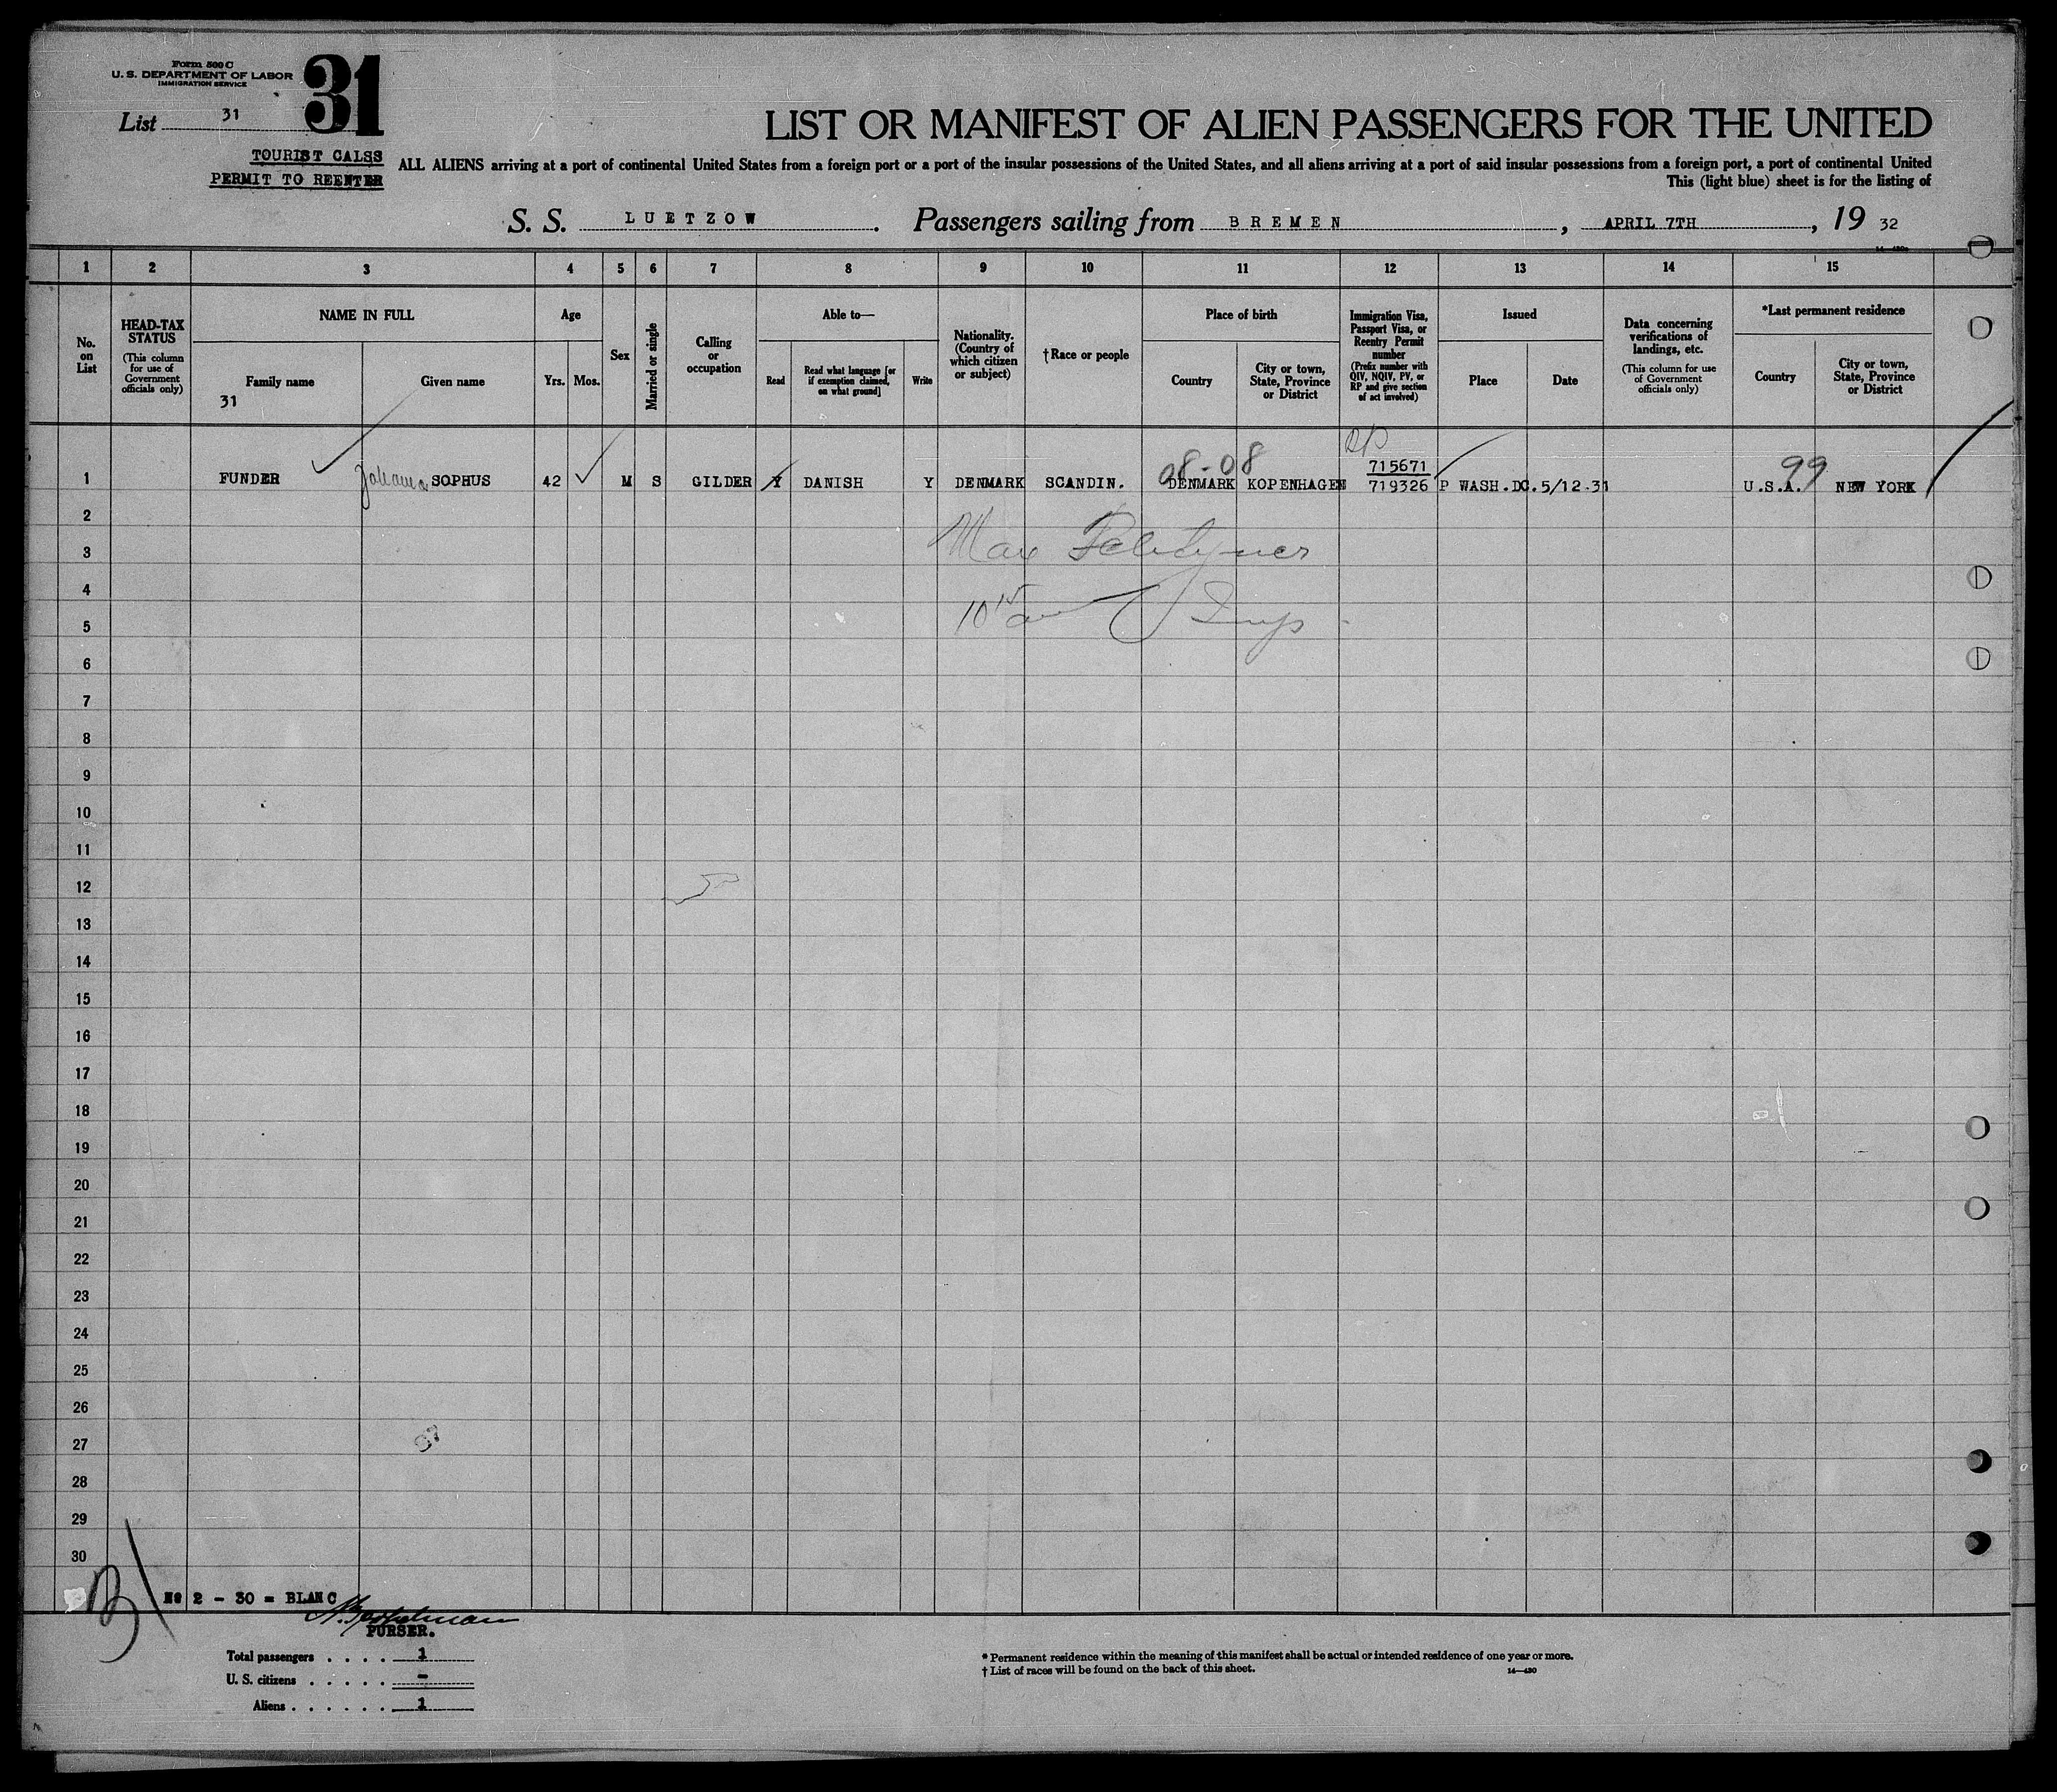 Form 500 C
U. S. DEPARTMENT OF LABOR
IMMIGRATION SERVICE
31
List 31
TOURIST CALSS
PERMIT TO REENTER
LIST OR MANIFEST OF ALIEN PASSENGERS FOR THE UNITED
ALL ALIENS arriving at a port of continental United States from a foreign port or a port of the insular possessions of the United States, and all aliens arriving at a port of said insular possessions from a foreign port, a port of continental United
This (light blue) sheet is for the listing of
S. S. LUETZOW. Passengers sailing from BREMEN, APRIL 7TH, 19 32
1 2 3 4 5 6 7 8 9 10 11 12 13 14 15
No. on List
HEAD-TAX STATUS (This column for use of Government officials only)
NAME IN FULL
Family name
31
Given name
Age
Yrs. Mos.
Sex
Married or single
Calling or occupation
Able to—
Read
Read what language [or if exemption claimed, on what ground]
Write
Nationality. (Country of which citizen or subject)
†Race or people
Place of birth
Country
City or town, State, Province or District
Immigration Visa, Passport Visa, or Reentry Permit number (Prefix number with QIV, NQIV, PV, or RP and give section of act involved)
Issued
Place
Date
Data concerning verifications of landings, etc. (This column for use of Government officials only)
*Last permanent residence
Country
City or town, State, Province or District
RP
08-08 715671 99
1 FUNDER Johannes SOPHUS 42 M S GILDER Y DANISH Y DENMARK SCANDIN. DENMARK KOPENHAGEN 719326 P WASH.DC. 5/12.31 U.S.A. NEW YORK
2
3 Max
4
5 10 15 Insp
6
7
8
9
10
11
12
13
14
15
16
17
18
19
20
21
22
23
24
25
26
27
28
29
30
No 2 - 30 = BLANC
PURSER.
Total passengers . . . . 1
U. S. citizens . . . . . -
Aliens . . . . . . 1
* Permanent residence within the meaning of this manifest shall be actual or intended residence of one year or more.
† List of races will be found on the back of this sheet. 14—430